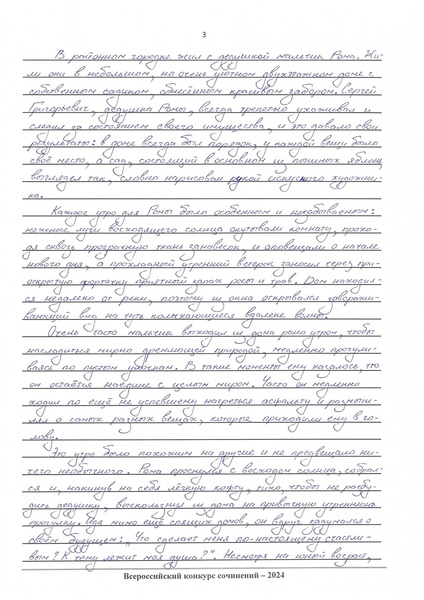 3
В районном городке жил с дедушкой мальчик Рома. Жи-
ли они в небольшом, но очень уютном двухэтажном доме с
собственным садиком, обнесённым красивым забором. Сергей
Григорьевич, дедушка Ромы, всегда трепетно ухаживал и
следил за состоянием своего имущества, и это давало свои
результаты: в доме всегда был порядок, у каждой вещи было
своё место, а сад, состоящий в основном из пышных яблонь,
выглядел так, словно нарисован рукой искусного художни-
ка.
Каждое утро для Ромы было особенным и незабываемым:
нежные лучи восходящего солнца окутывали комнату, прохо-
дя сквозь прозрачную ткань занавесок, и оповещали о начале
нового дня, а прохладный утренний ветерок заносил через при-
открытую форточку приятный запах росы и трав. Дом находил-
ся недалеко от реки, поэтому из окна открывался завораживающий
вид на чуть колыхающиеся вдалеке волны.
Очень часто мальчик выходил из дома рано утром, чтобы
насладиться мирно дремлющей природой, медленно прогули-
ваясь по пустым улочкам. В такие моменты ему казалось, что
он остаётся наедине с целым миром. Часто он медленно
ходил по ещё не успевшему нагреться асфальту и размыш-
лял о самых разных вещах, которые приходили ему в го-
лову.
Это утро было похожим на другие и не предвещало ни-
чего необычного. Рома проснулся с восходом солнца, собрал-
ся и, накинув на себя лёгкую кофту, тихо, чтобы не разбу-
дить дедушку, выскользнул из дома на привычную утреннюю
прогулку. Идя мимо ещё спящих домов, он вдруг задумался о
своём будущем: „Что сделает меня по-настоящему счастли-
вым? К чему лежит моя душа?". Несмотря на юный возраст,
Всероссийский конкурс сочинений – 2024